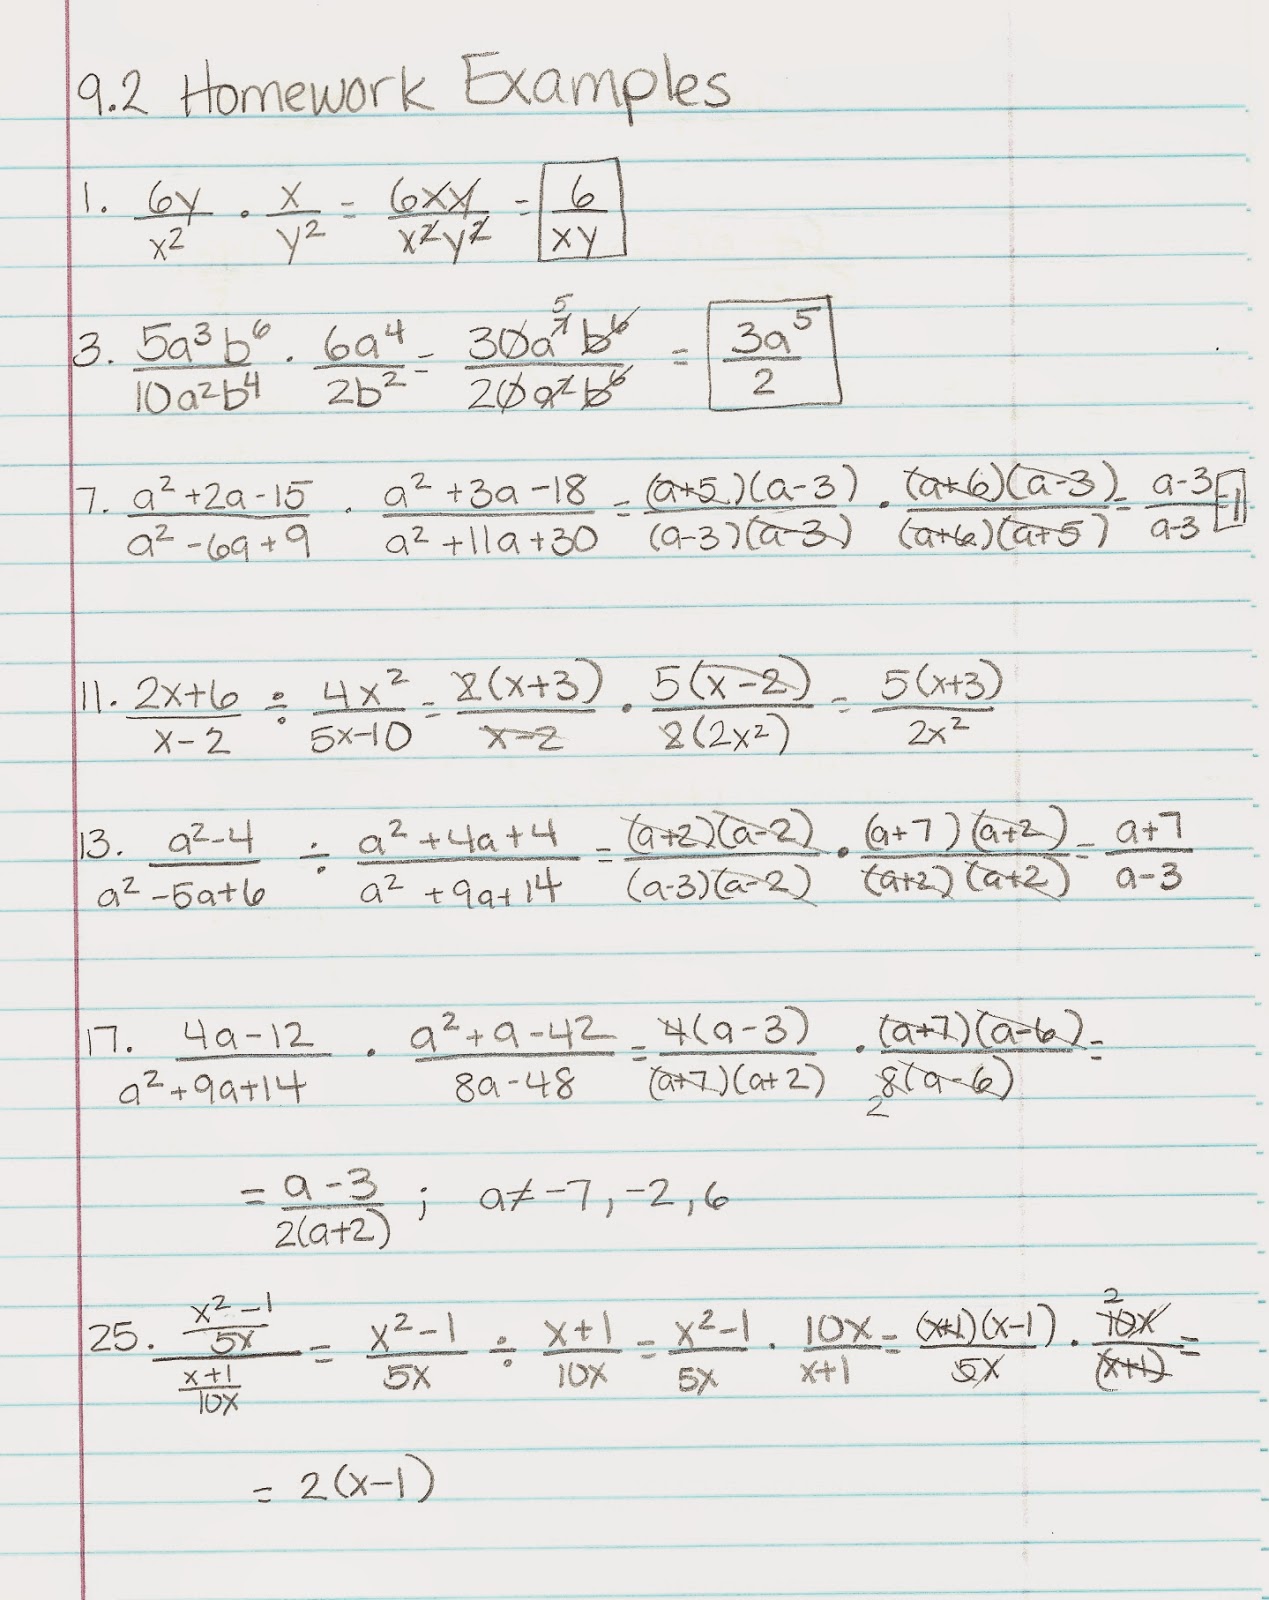 9.2 Homework Examples
1. 6y/x² · x/y² = 6xy/x²y² = 6/xy
3. 5a³b⁶/10a²b⁴ · 6a⁴/2b² = 30a⁷b⁶/20a²b⁶ 5 = 3a⁵/2
7. a²+2a-15/a²-6a+9 · a²+3a-18/a²+11a+30 = (a+5)(a-3)/(a-3)(a-3) · (a+6)(a-3)/(a+6)(a+5) = a-3/a-3 = 1
11. 2x+6/x-2 ÷ 4x²/5x-10 = 2(x+3)/x-2 · 5(x-2)/2(2x²) = 5(x+3)/2x²
13. a²-4/a²-5a+6 ÷ a²+4a+4/a²+9a+14 = (a+2)(a-2)/(a-3)(a-2) · (a+7)(a+2)/(a+2)(a+2) = a+7/a-3
17. 4a-12/a²+9a+14 · a²+a-42/8a-48 = 4(a-3)/(a+7)(a+2) · (a+7)(a-6)/8(a-6) 2 =
= a-3/2(a+2) ; a≠-7,-2,6
25. x²-1/5x / x+1/10x = x²-1/5x ÷ x+1/10x = x²-1/5x · 10x/x+1 = (x+1)(x-1)/5x · 2 10x/(x+1) =
= 2(x-1)